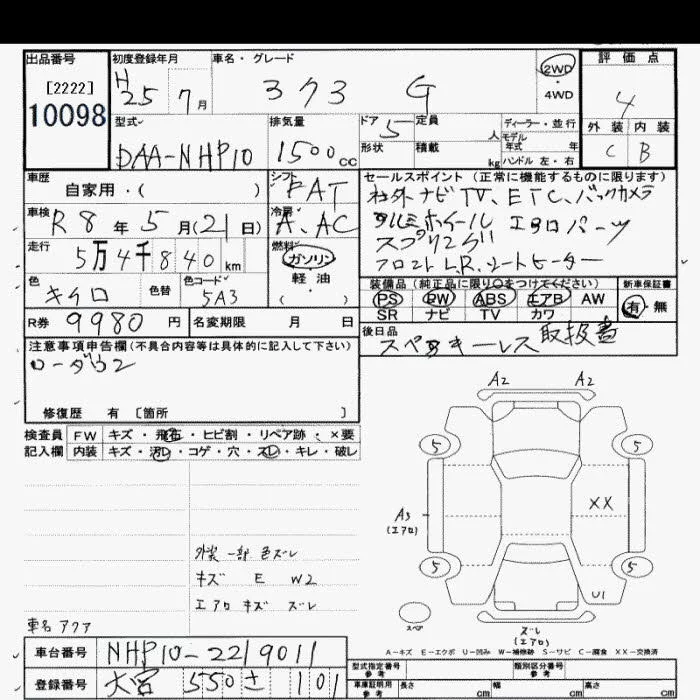 出品番号
[2222]
10098
初度登録年月
H 25 7月
車名・グレード
アクア G
2WD
・
4WD
評価点
4
外装 内装
C B
型式
DAA-NHP10
排気量
1500cc
ドア 5
定員 人
形状
積載 kg
ディーラー・並行
モデル年式 年
ハンドル 左・右
車歴
自家用・( )
シフト
FAT
車検
R8年5月(21日)
冷房
A、AC
走行
5万4千840km
燃料
ガソリン
軽・油
( )
色
キイロ
色替
色コード
5A3
R券 9980円
名変期限 月 日
セールスポイント(正常に機能するものに限ります)
社外ナビ TV、ETC、バックカメラ
アルミホイール エアロパーツ
フロントL,R,シートヒーター
装備品(純正品に限り○をつけてください)
PS PW ABS エアB AW
SR ナビ TV カワ
新車保証書
有・無
後日品
スペアキーレス 取扱書
注意事項申告欄(不具合内容等は具体的に記入して下さい)
ローダウン
修復歴 有〔箇所 〕
検査員記入欄
FW キズ・飛石・ヒビ割・リペア跡・×要
内装 キズ・汚レ・コゲ・穴・スレ・キレ・破レ
外装一部色ズレ
キズ E W2
エアロ キズ ズレ
A2 A2
5 5
A3
(エアロ)
XX
5 5
U1
スペア
ズレ
(エアロ)
A-キズ E-エクボ U-凹み W-補修跡 S-サビ C-腐食 XX-交換済
車名 アクア
車台番号 NHP10-2219011
登録番号 大宮 550 さ 101
型式指定番号 参考
類別区分番号 参考
車庫証明用 参考
長さ cm 幅 cm 高さ cm